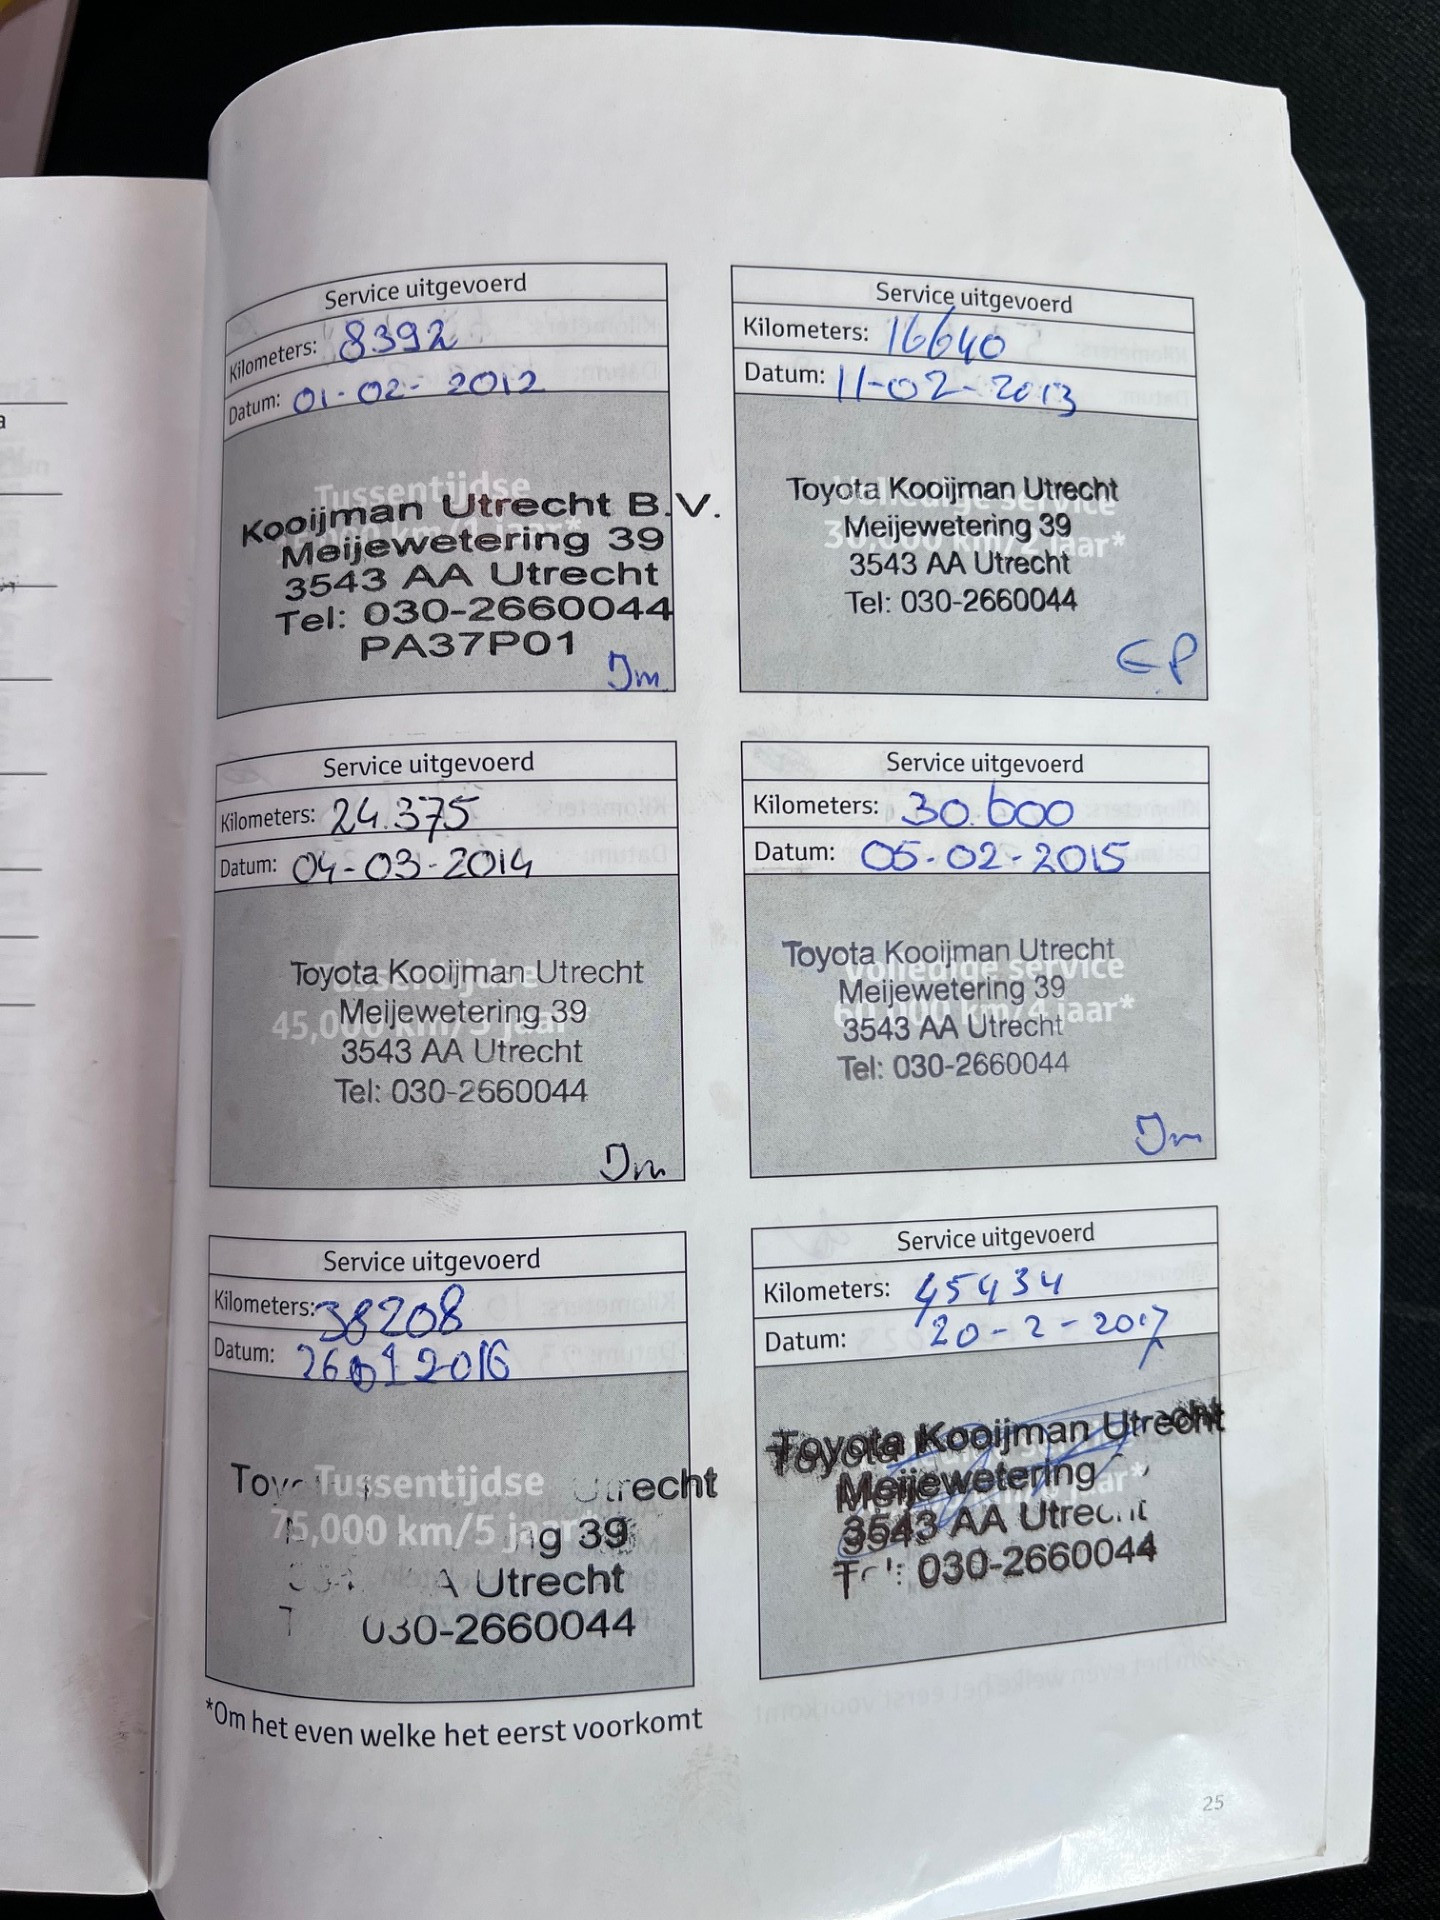 Service uitgevoerd
Kilometers: 8392
Datum: 01-02-2012
Tussentijdse
Kooijman Utrecht B.V.
Meijewetering 39
3543 AA Utrecht
Tel: 030-2660044
PA37P01
Jm
Service uitgevoerd
Kilometers: 16640
Datum: 11-02-2013
Toyota Kooijman Utrecht
Volledige service
Meijewetering 39
30,000 km/2 jaar*
3543 AA Utrecht
Tel: 030-2660044
EP
Service uitgevoerd
Kilometers: 24.375
Datum: 04-03-2014
Toyota Kooijman Utrecht
Tussentijdse
Meijewetering 39
45,000 km/3 jaar*
3543 AA Utrecht
Tel: 030-2660044
Jm
Service uitgevoerd
Kilometers: 30.600
Datum: 05-02-2015
Toyota Kooijman Utrecht
Volledige service
Meijewetering 39
60,000 km/4 jaar*
3543 AA Utrecht
Tel: 030-2660044
Jm
Service uitgevoerd
Kilometers: 38208
Datum: 26 01 2016
Tussentijdse
Utrecht
75,000 km/5 jaar*
39
AA Utrecht
030-2660044
Service uitgevoerd
Kilometers: 45434
Datum: 20-2-2017
Toyota Kooijman Utrecht
Meijewetering
jaar*
3543 AA Utrecht
Tel: 030-2660044
*Om het even welke het eerst voorkomt
25